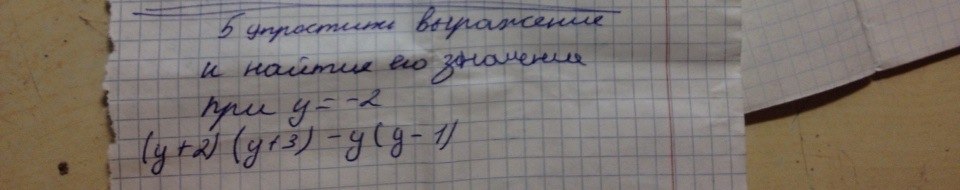 5 упростить выражение
и найти его значение
при y = -2
(y+2) (y+3) - y (y - 1)